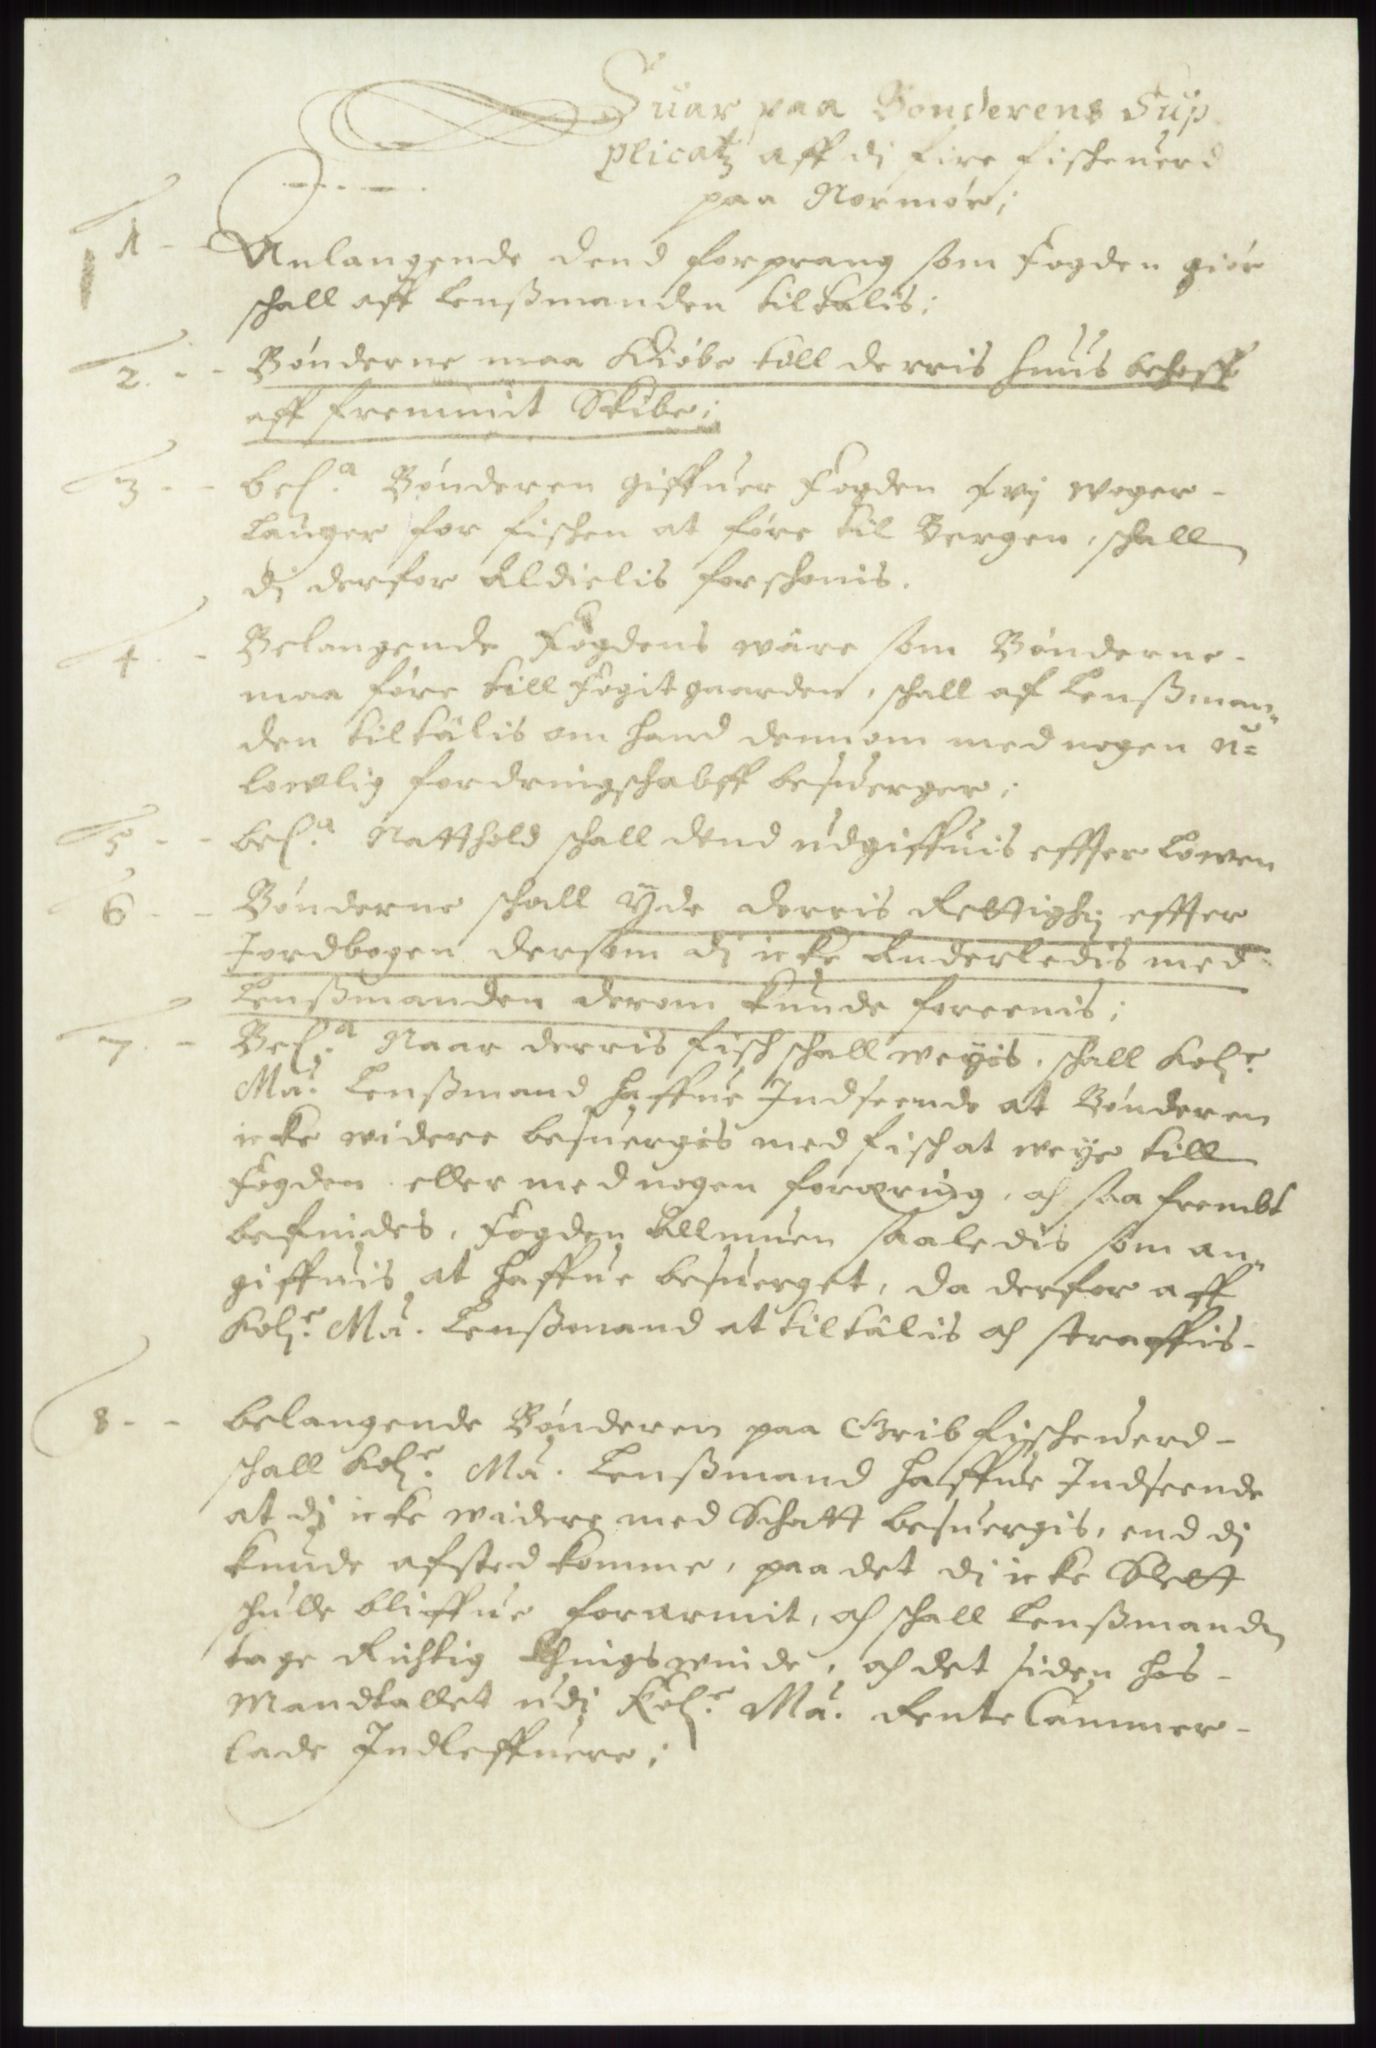 Suar paa Bonderens Sup
plicatz aff di fire fischeuerd
paa Normør;
1 - - Anlangende dend forprang som Fogden giør
schall aff Lenßmanden tiltalis;
2. - - Bønderne maa Kiøbe till derris huus behoff
aff fremmit Skibe;
3 - - Bel.a Bønderen giffuer Fogden fri woger -
Lauger for fischen at føre til Bergen, schall
di derfor Aldielis forschonis.
4. - Belangende Fogdens ware som Bønderne -
maa føre till Fogitgaarden, schall af Lenßman„
den tiltalis om hand dennom med nogen u=
lowlig fordringschabff besuerger;
5 - - Bel.a Natthold schall dend udgiffuis effter Lowen
6 - - Bønderne schall Yde derris Rettighj effter
Jordbogen dersom di icke Anderledis med
Lenßmanden derom kunde foreenis;
7. - Bel.a Naar derris fisch schall weyis, schall Kolg.e
Ma. Lenßmand haffue Indseende at Bønderen
icke widere besuergis med fisch at weye till
Fogden eller med nogen foræring, och saa frembt
befindes, Fogden Allmuen saaledis som an„
giffuis at haffue besuerget, da derfor aff
Kolg.e Ma. Lenßmand at tiltalis och straffis -
8 - - Belangende Bønderen paa Grib fischeuerd -
schall Kolg.e Ma. Lenßmand haffue Indseende
at di icke widere med Schatt besuergis, end di
kunde afsted komme, paa det di icke Slett
schulle bliffue forarmit, och schall Lenßmanden
tage Richtig thingswinde, och det siden hos -
Mandtallet udi Kolg.e Ma. Rente Cammer -
lade Indleffuere;